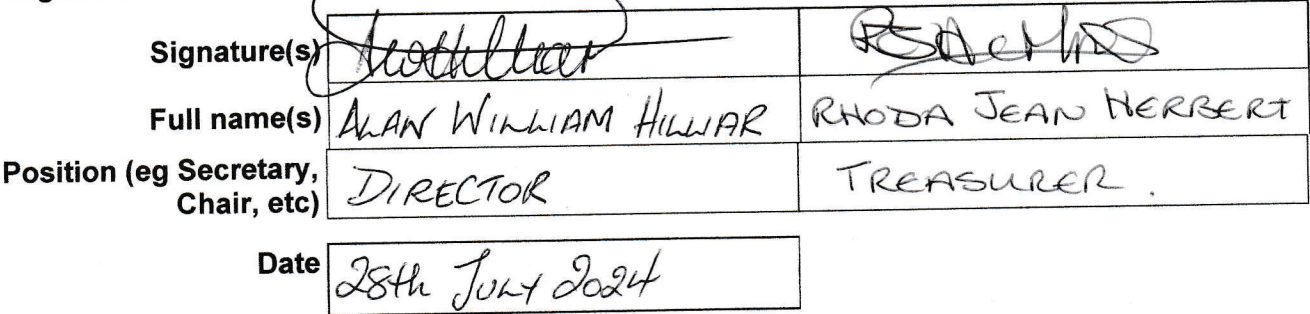 Signature(s)
Full name(s) ALAN WILLIAM HILLIAR RHODA JEAN HERBERT
Position (eg Secretary, DIRECTOR TREASURER.
Chair, etc)
Date 28th JULY 2024